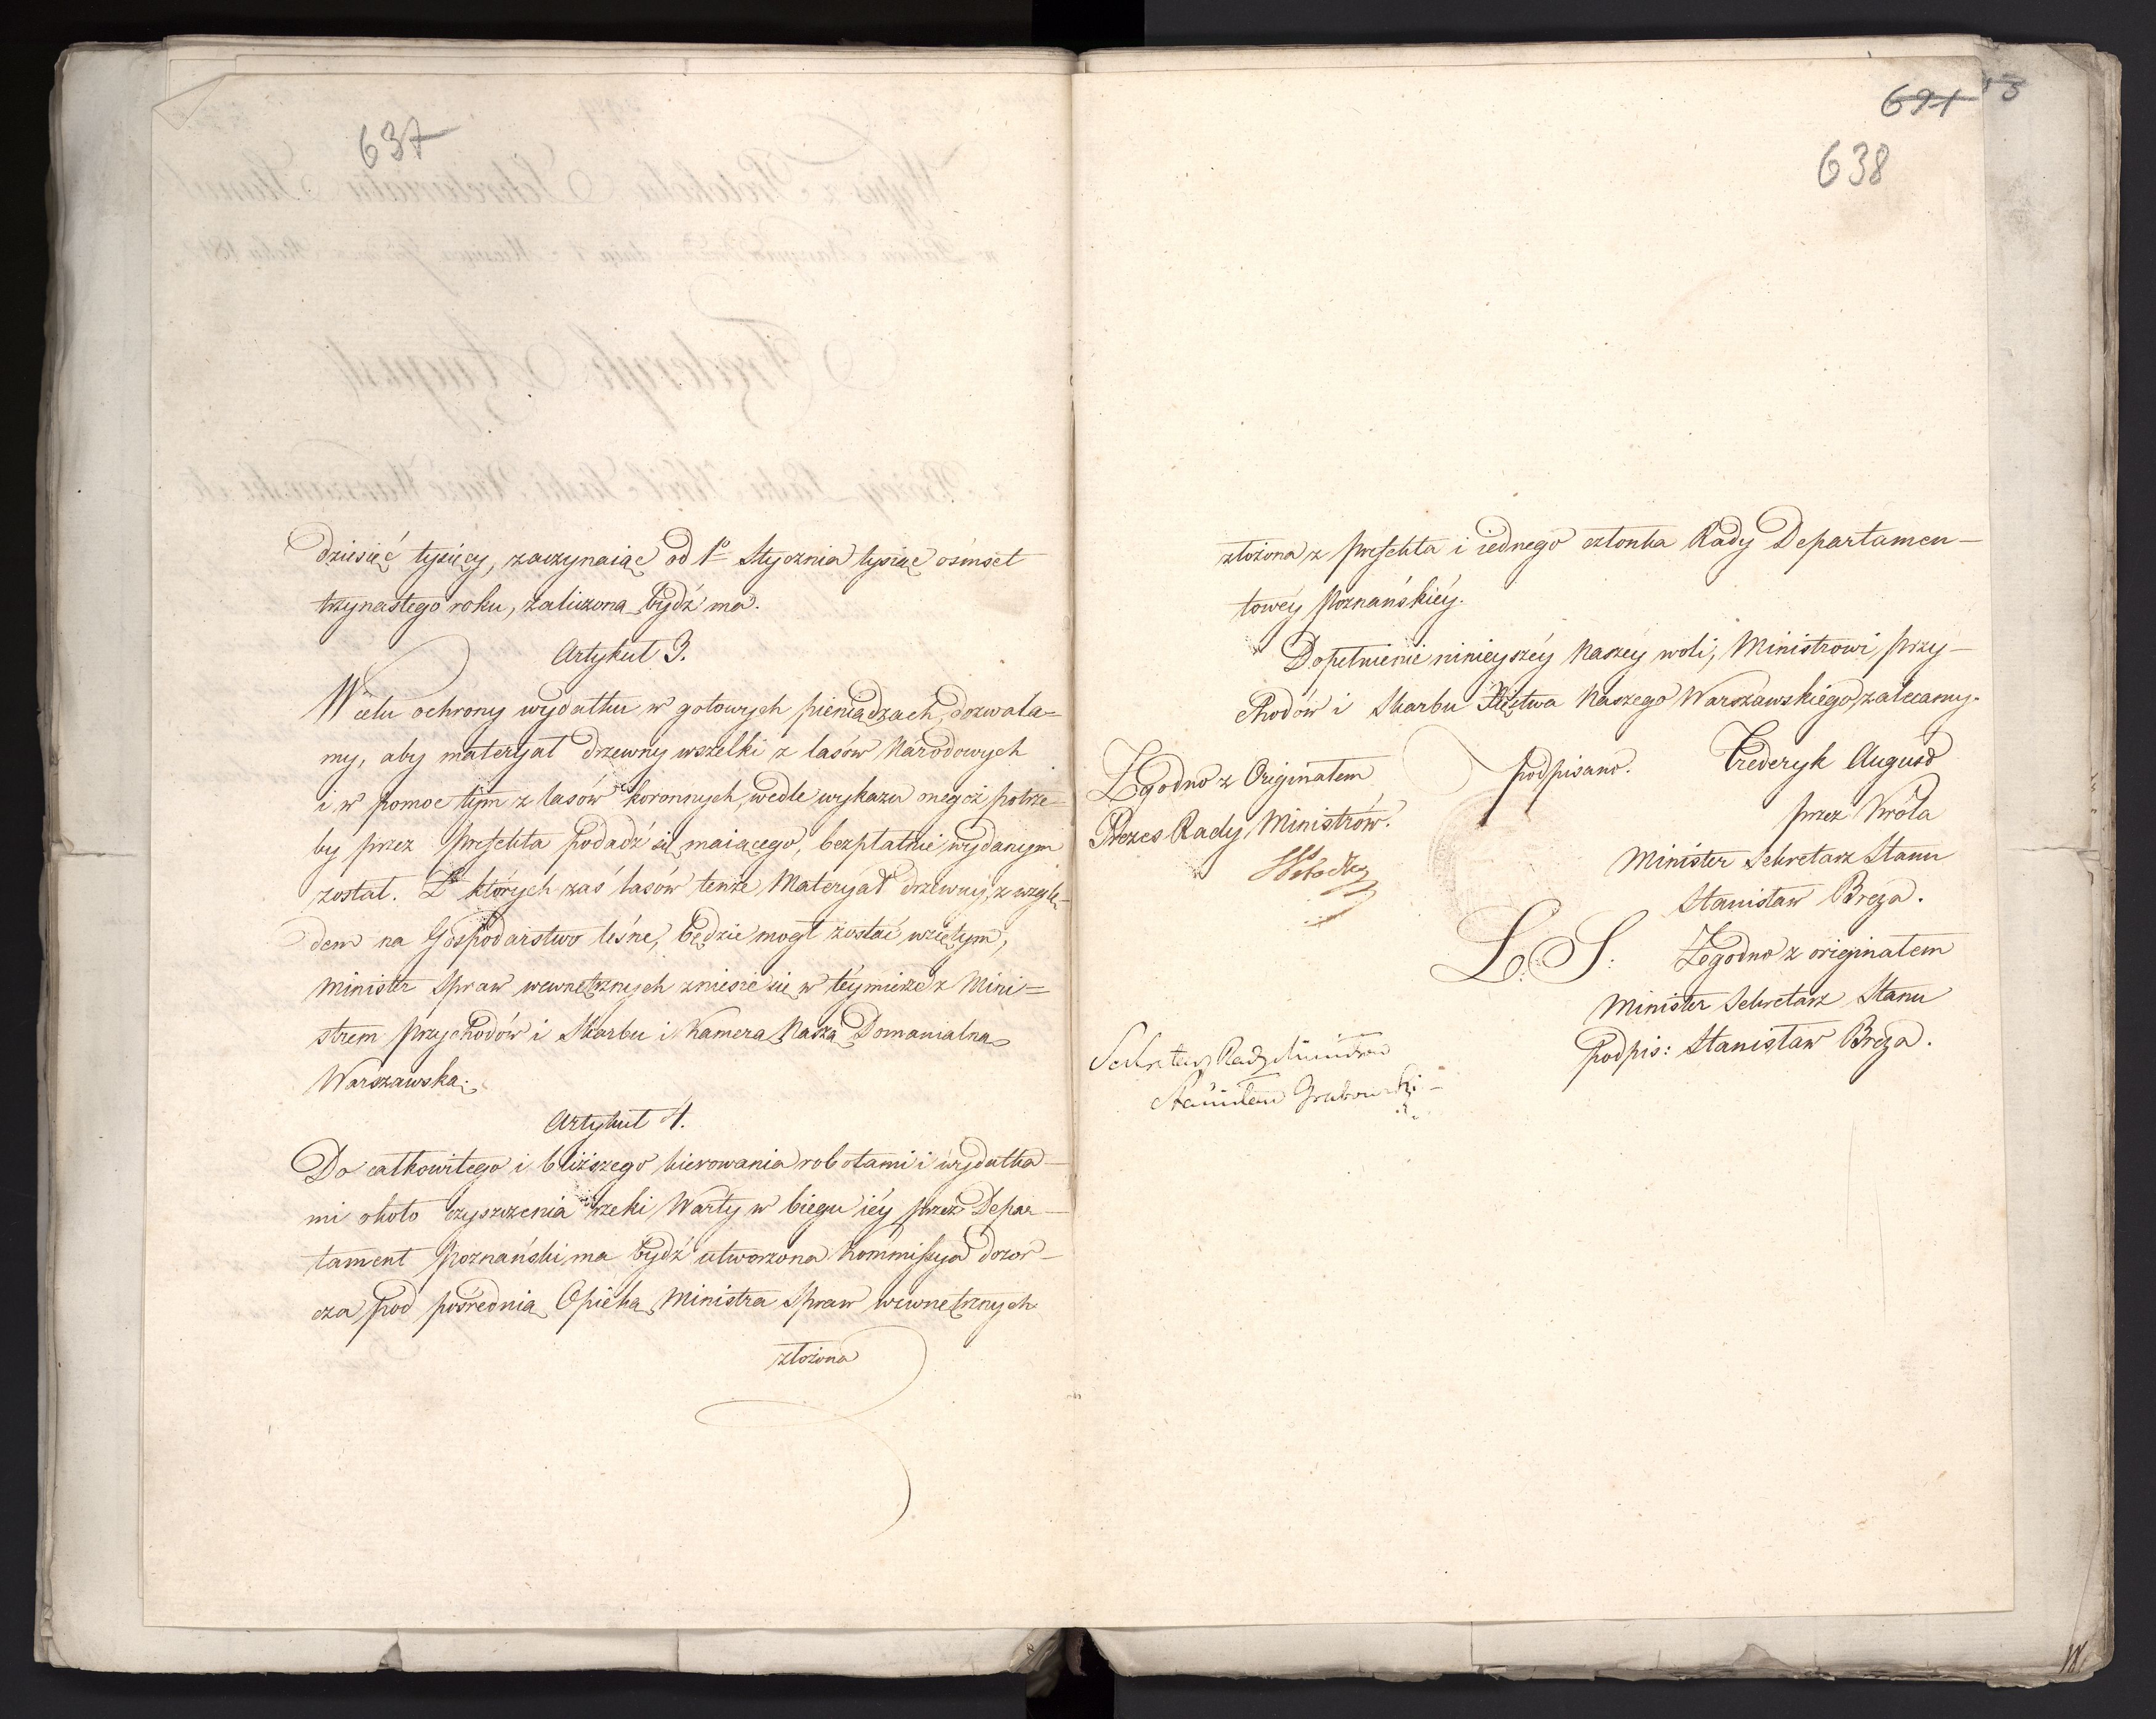 637
dziesięć tysięcy, zaczynaiąc od 1º Stycznia tysiąc ośmset
trzynastego roku, zaliczona bydź ma.
Artykuł 3.
W celu ochrony wydatku w gotowych pieniądzach, dozwala=
my, aby materyał drzewny wszelki z lasów Narodowych
i w pomoc tym z lasów koronnych, wedle wykazu onegoż potrze-
by przez Prefekta podadź się maiącego, bezpłatnie wydanym
został. Z których zaś lasów tenże Materyał drzewny, z wzglę-
dem na Gospodarstwo leśne, będzie mogł zostać wziętym,
Minister Spraw wewnętrznych zniesie się w téymierze z Mini=
strem Przychodów i Skarbu i Kamerą Naszą Domanialną
Warszawską.
Artykuł 4.
Do całkowitego i bliższego kierowania robotami i wydatka-
mi około czyszczenia rzeki Warty w biegu iéy przez Depar-
tament Poznański, ma bydź utworzona Kommissya dozor-
cza pod pośrednią Opieką Ministra Spraw wewnętrznych
złożona
691
638
złożona z Prefekta i iednego członka Rady Departamen-
towéy Poznańskiéy.
Dopełnienie ninieyszéy Naszéy woli, Ministrowi Przy-
chodów i Skarbu Xięztwa Naszego Warszawskiego, zalecamy.
podpisano. Frederyk August
przez Króla
Minister Sekretarz Stanu
Stanisław Breza.
Zgodno z Originałem
Prezes Rady Ministrów.
L. S. Zgodno z originałem
Minister Sekretarz Stanu
Podpis: Stanisław Breza.
Sekretarz Rady Ministrów
Stanisław Grabowski